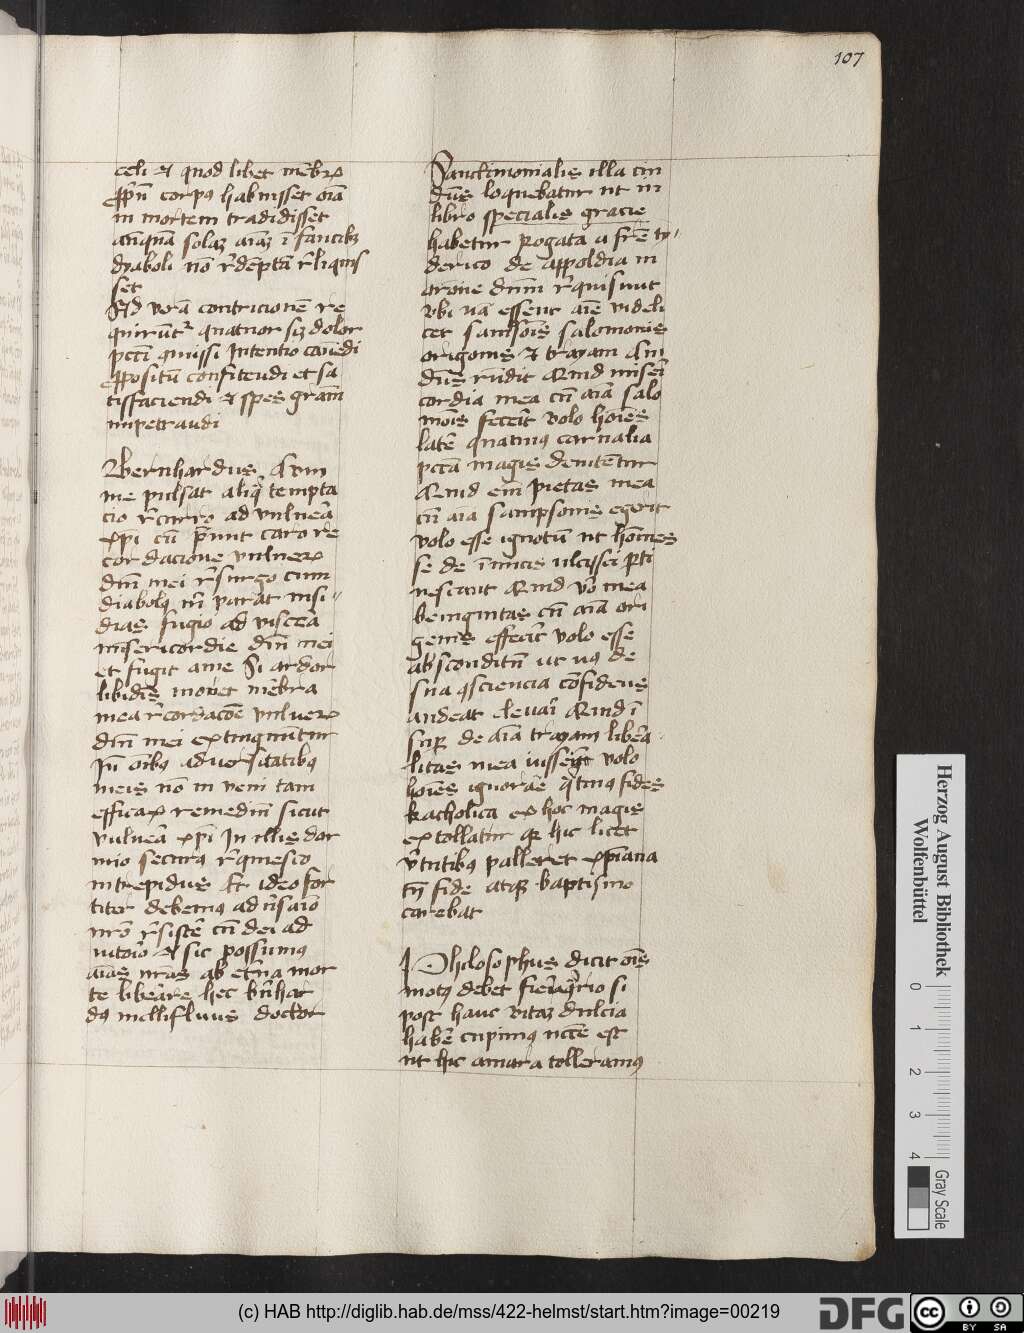 107
celi et quod libet mēbrꝝ
ꝓpriū corpꝰ habuisset oīa
in mortem tradidisset
anquā solaꝫ aīaꝫ ī faucibꝫ
dyaboli nō rͤdēptā rͤliquis
set
Ad verā contricionē re
quirūtͬ quatuor sꝫ dolor
pctī qmissi Intentio cauēdi
ꝓpositū confitendi et sa
tisfaciendi et spes grām
impetrandi
Bernhardus Cum
me pulsat aliqͣ tempta
cio rͤcurro ad vulnera
xpī cū p̄mit caro re
cordacione vulnerꝝ
dnī mei rͤsurgo cum
diabolꝰ mͥ parat insi
dias fugio ad viscera
misericordie dnī mei
et fugit a me Si ardor
libidīs mouet mēbra
mea rͤcordacōe vulnerꝝ
dnī mei extinguūtur
In oībꝰ aduersitatibꝰ
meis nō in veni tam
efficax remediū sicut
vulnera xpī In illis dor
mio securꝰ rͤquiesco
intrepidus Et ideo for
titer debemꝰ aduͬsaīo
nrō rͤsistere cū dei ad
iutorio Et sic possumꝰ
aīas nras ab etͬna mor
te liberare hec bͬnhar
dꝰ mellifluus doctor
Sanctimonialis illa cui
dūs loquebatur ut in
libro specialis gracie
habetur Rogata a frē ty
derico de appoldia in
oraōne dnm rͤquisiuit
vbi nā essent aīe videli
cet Samsōis Salomonis
origenis et trayani Cui
dūs rn̄dit Quid miseri
cordia mea cū aīa salo
mōis fecerit volo hoīes
latere quatinus carnalia
pctā magis deuitētur
Quid eī pietas mea
cū aīa Sampsonis egerit
volo esse ignotū ut homīes
se de īimicis ulcissci ꝑti
mescant Quid vͦ mea
benignitas cū aīa ori
genis effecit volo esse
absconditū ut nꝰ de
sua ꝯsciencia cōfidens
audeat eleuari Quid ī
suꝑ de aīa trayani libera
litas mea iusserit volo
hoīes ignorare qͣtinꝰ fides
katholica ex hoc magis
extollatur qꝫ hic licet
vͥtutibꝰ polleret xpīana
tn̄ fide atqꝫ baptismo
carebat
Philosophus dicit oīs
motꝰ debet fieri si
post hanc vitaꝫ dulcia
habere cupimꝰ nccē est
ut hic amara tolleramꝰ
Herzog August Bibliothek
Wolfenbüttel
0 1 2 3 4
Gray Scale
(c) HAB http://diglib.hab.de/mss/422-helmst/start.htm?image=00219
DFG
cc BY SA